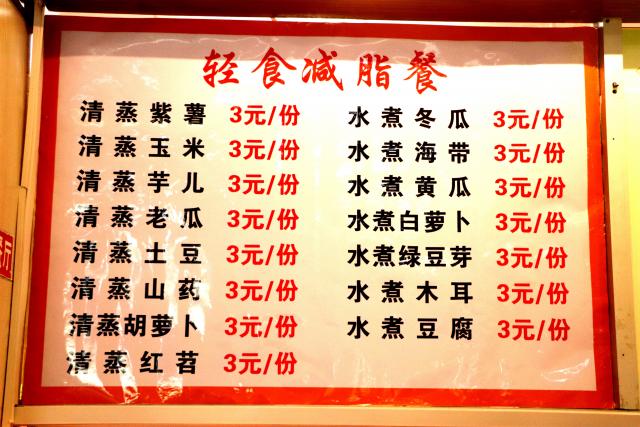 轻食减脂餐
清蒸紫薯 3元/份
清蒸玉米 3元/份
清蒸芋儿 3元/份
清蒸老瓜 3元/份
清蒸土豆 3元/份
清蒸山药 3元/份
清蒸胡萝卜 3元/份
清蒸红苕 3元/份
水煮冬瓜 3元/份
水煮海带 3元/份
水煮黄瓜 3元/份
水煮白萝卜 3元/份
水煮绿豆芽 3元/份
水煮木耳 3元/份
水煮豆腐 3元/份